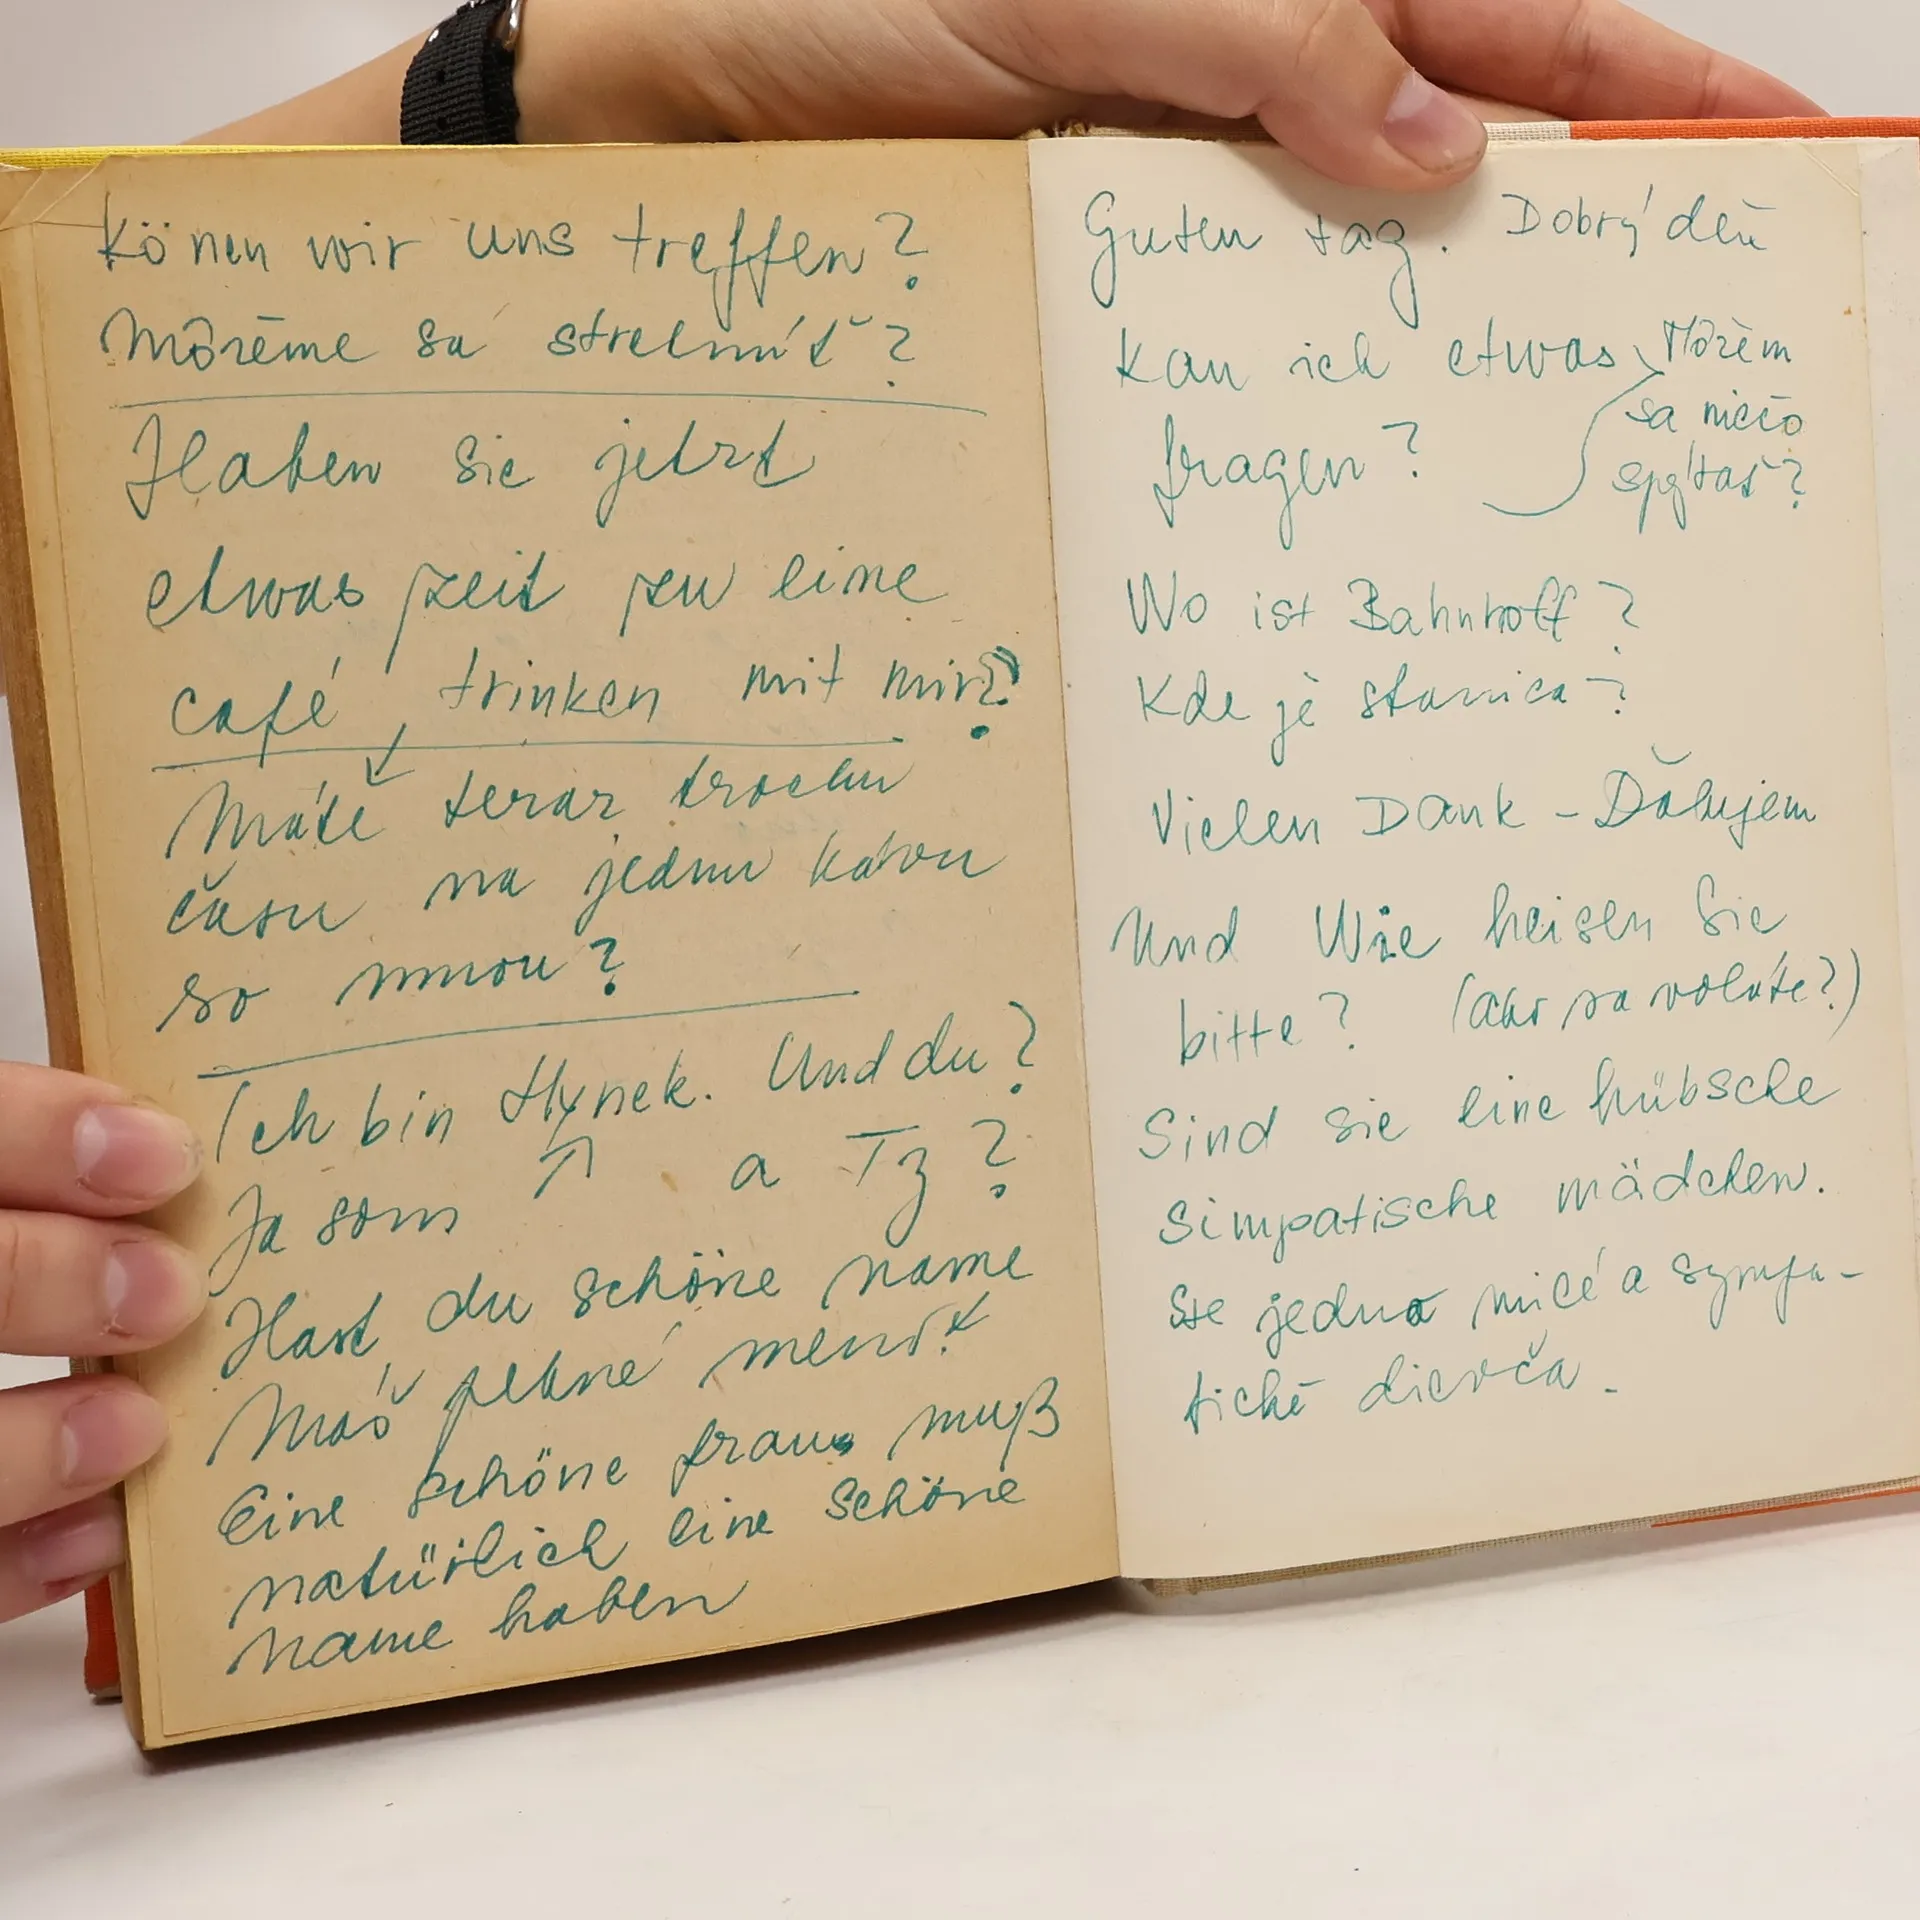 Könen wir uns treffen?
Môžeme sa stretnúť?
Haben sie jetzt
etwas zeit zu eine
café trinken mit mir?
Máte teraz trochu
času na jednu kávu
so mnou?
Ich bin Hynek. Und du?
Ja som a Ty?
Hast du schöne name
Máš pekné meno!
Eine schöne frau muß
natürlich eine schöne
name haben
Guten tag. Dobrý deň
Kan ich etwas
fragen?
Môžem
sa niečo
spýtať?
Wo ist Bahnhoff?
Kde je stanica?
Vielen Dank - Ďakujem
Und Wie heisen Sie
bitte? (Ako sa voláte?)
Sind sie eine hübsche
simpatische mädchen.
Ste jedno milé a sympa-
tické dievča.